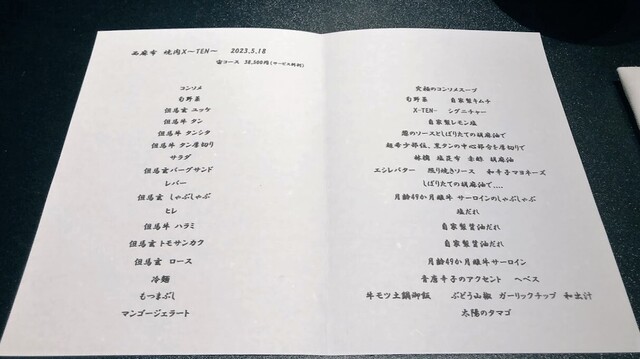 西麻布 焼肉X〜TEN〜 2023.5.18
宙コース 38,500円(サービス料別)
コンソメ 究極のコンソメスープ
旬野菜 旬野菜 自家製キムチ
但馬玄 ユッケ X-TEN- シグニチャー
但馬牛 タン 自家製レモン塩
但馬牛 タンシタ 葱のソースとしぼりたての胡麻油で
但馬牛 タン厚切り 超希少部位、黒タンの中心部分を厚切りで
サラダ 林檎 塩昆布 赤酢 胡麻油
但馬玄バーグサンド エシレバター 照り焼きソース 和辛子マヨネーズ
レバー しぼりたての胡麻油で....
但馬玄 しゃぶしゃぶ 月齢49か月雌牛 サーロインのしゃぶしゃぶ
ヒレ 塩だれ
但馬牛 ハラミ 自家製醤油だれ
但馬玄 トモサンカク 自家製醤油だれ
但馬玄 ロース 月齢49か月雌牛 サーロイン
冷麺 青唐辛子のアクセント ヘベス
もつまぶし 牛モツ土鍋御飯 ぶどう山椒 ガーリックチップ 和出汁
マンゴージェラート 太陽のタマゴ